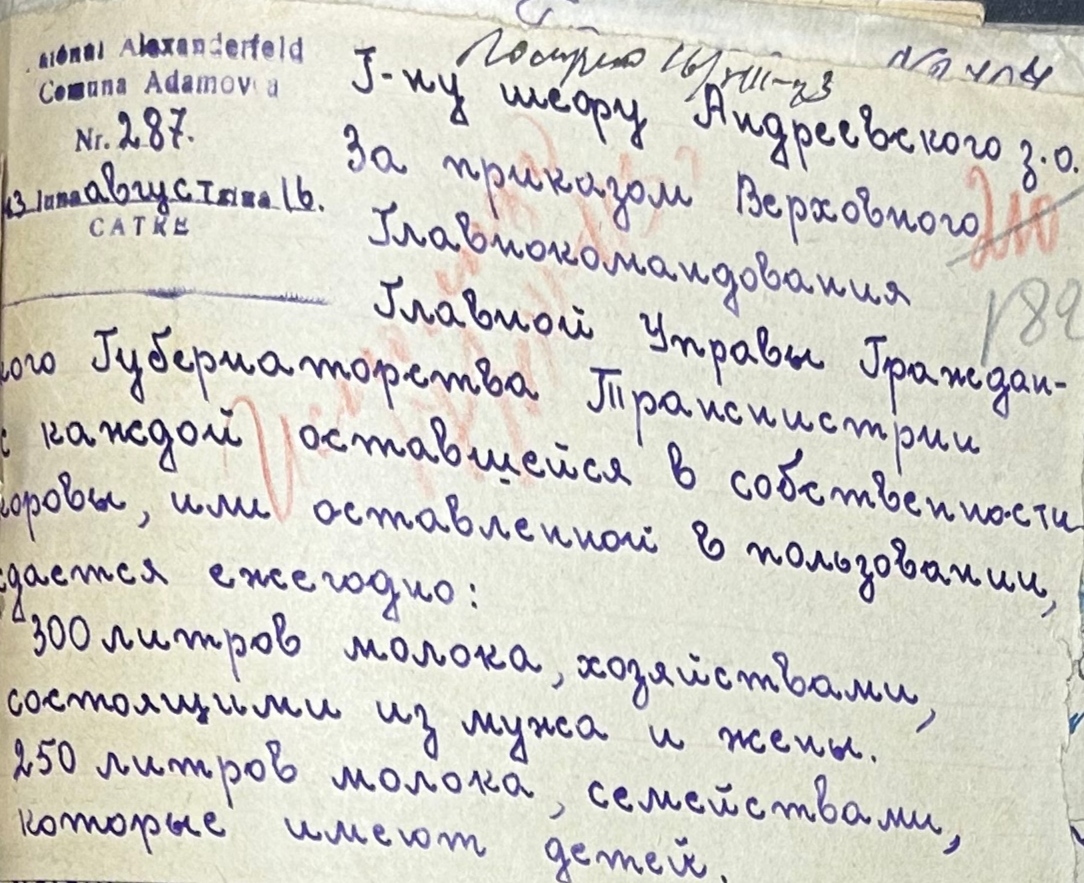 Alexanderfeld
Comuna Adamovca
Nr. 287.
43 luna август ziua 16.
CATRE
16/VIII-43
Г-ну шефу Андреевского з.о.
За приказом Верховного
210
Главнокомандования
Главной Управы Граждан-
182
кого Губернаторства Транснистрии
с каждой оставшейся в собственности
коровы, или оставленной в пользовании,
сдается ежегодно:
300 литров молока, хозяйствами,
состоящими из мужа и жены.
250 литров молока, семействами,
которые имеют детей.